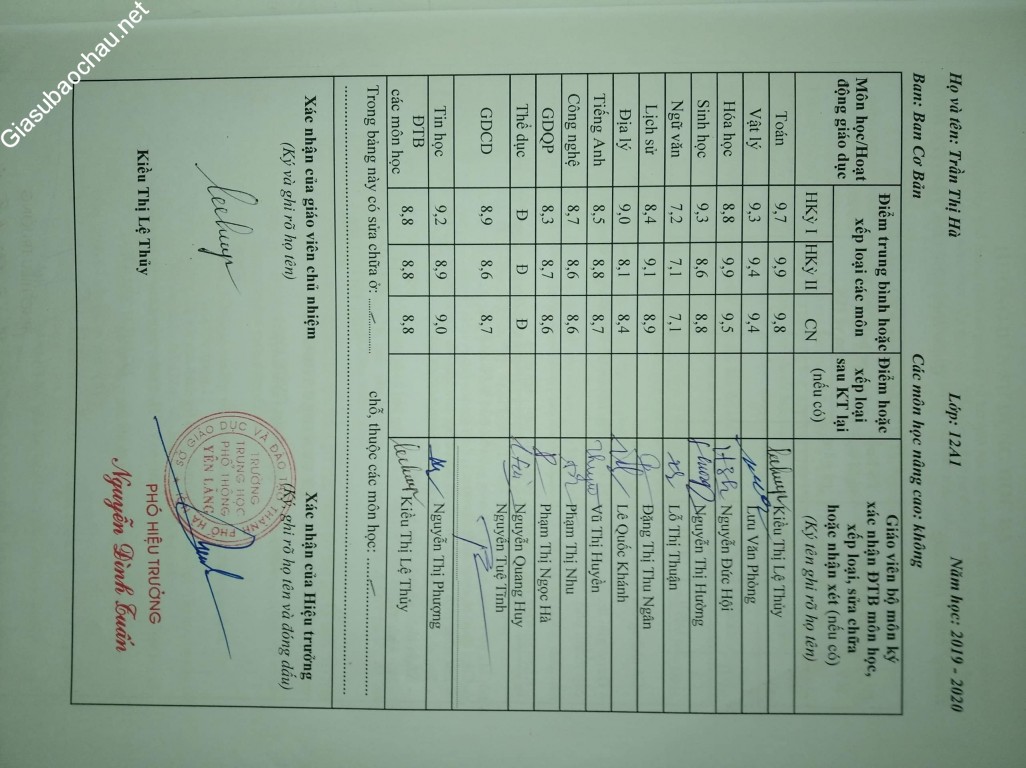 Họ và tên: Trần Thị Hà Lớp: 12A1 Năm học: 2019 - 2020
Ban: Ban Cơ Bản Các môn học nâng cao: không
Môn học/Hoạt động giáo dục
Điểm trung bình hoặc xếp loại các môn
Điểm hoặc xếp loại sau KT lại (nếu có)
Giáo viên bộ môn ký xác nhận ĐTB môn học, xếp loại, sửa chữa hoặc nhận xét (nếu có)
(Ký tên ghi rõ họ tên)
HKỳ I HKỳ II CN
Toán 9,7 9,9 9,8 Kiều Thị Lệ Thủy
Vật lý 9,3 9,4 9,4 Lưu Văn Phòng
Hóa học 8,8 9,9 9,5 Nguyễn Đức Hội
Sinh học 9,3 8,6 8,8 Nguyễn Thị Hường
Ngữ văn 7,2 7,1 7,1 Lỗ Thị Thuận
Lịch sử 8,4 9,1 8,9 Đặng Thị Thu Ngân
Địa lý 9,0 8,1 8,4 Lê Quốc Khánh
Tiếng Anh 8,5 8,8 8,7 Vũ Thị Huyền
Công nghệ 8,7 8,6 8,6 Phạm Thị Nhu
GDQP 8,3 8,7 8,6 Phạm Thị Ngọc Hà
Thể dục Đ Đ Đ Nguyễn Quang Huy
GDCD 8,9 8,6 8,7 Nguyễn Tuệ Tĩnh
Tin học 9,2 8,9 9,0 Nguyễn Thị Phượng
ĐTB các môn học 8,8 8,8 8,8 Kiều Thị Lệ Thủy
Trong bảng này có sửa chữa ở: ............ chỗ, thuộc các môn học: ............
Xác nhận của giáo viên chủ nhiệm
(Ký và ghi rõ họ tên)
Kiều Thị Lệ Thủy
Xác nhận của Hiệu trưởng
(Ký, ghi rõ họ tên và đóng dấu)
SỞ GIÁO DỤC VÀ ĐÀO TẠO THÀNH PHỐ HÀ
TRƯỜNG
TRUNG HỌC
PHỔ THÔNG
YÊN LÃNG
PHÓ HIỆU TRƯỞNG
Nguyễn Đình Tuấn
Giasubaochau.net